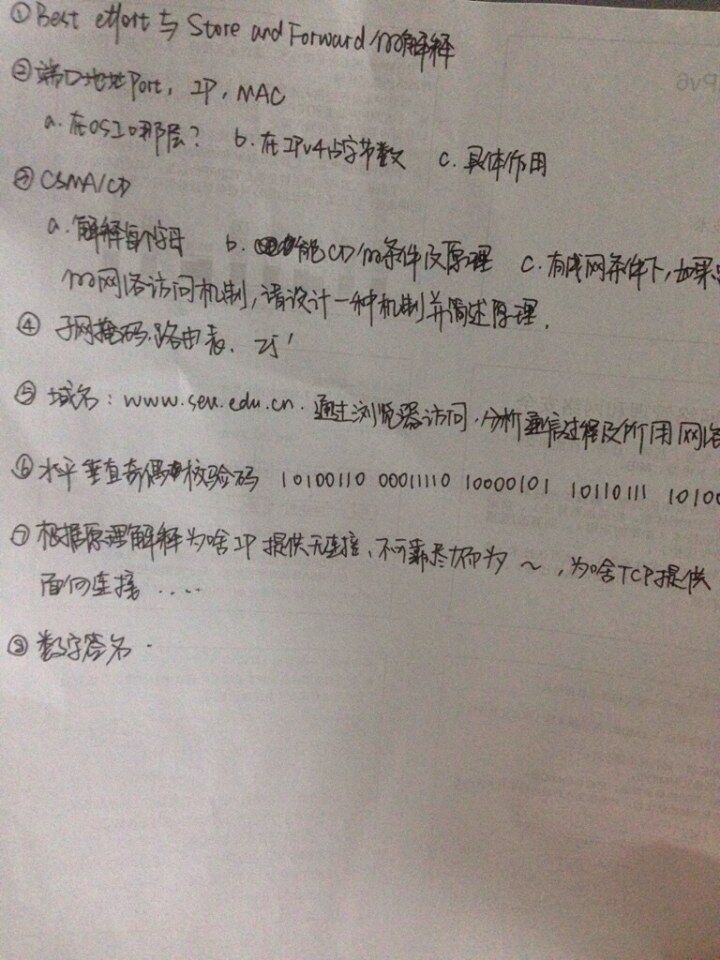 ① Best effort 与 Store and Forward 的解释
② 端口地址Port, IP, MAC
a. 在OSI哪层? b. 在IPv4占字节数 c. 具体作用
③ CSMA/CD
a. 解释每个字母 b. 能CD的条件及原理 c. 有线网条件下,如果
的网络访问机制,请设计一种机制并简述原理.
④ 子网掩码.路由表.
⑤ 域名: www.seu.edu.cn. 通过浏览器访问.分析通信过程及所用网络
⑥ 水平垂直奇偶校验码 10100110 00011110 10000101 10110111 10100
⑦ 根据原理解释为啥IP提供无连接、不可靠尽力而为~,为啥TCP提供
面向连接.....
⑧ 数字签名.
IPv6